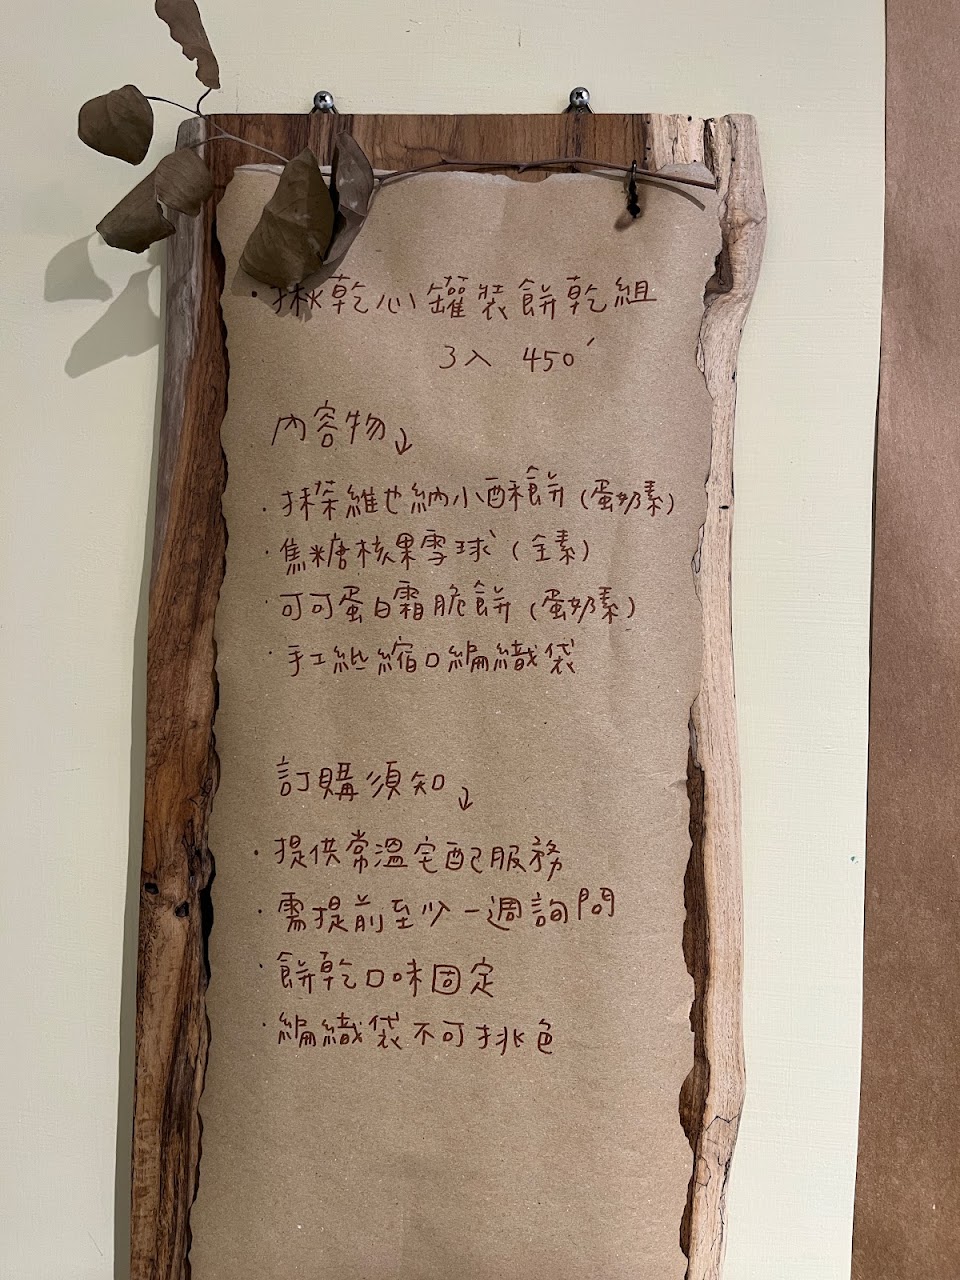 ·揪乾心罐裝餅乾組
3入 450'
內容物↓
·抹茶維也納小酥餅(蛋奶素)
·焦糖核果雪球(全素)
·可可蛋白霜脆餅(蛋奶素)
·手工紙縮口編織袋
訂購須知↓
·提供常溫宅配服務
·需提前至少一週詢問
·餅乾口味固定
·編織袋不可挑色